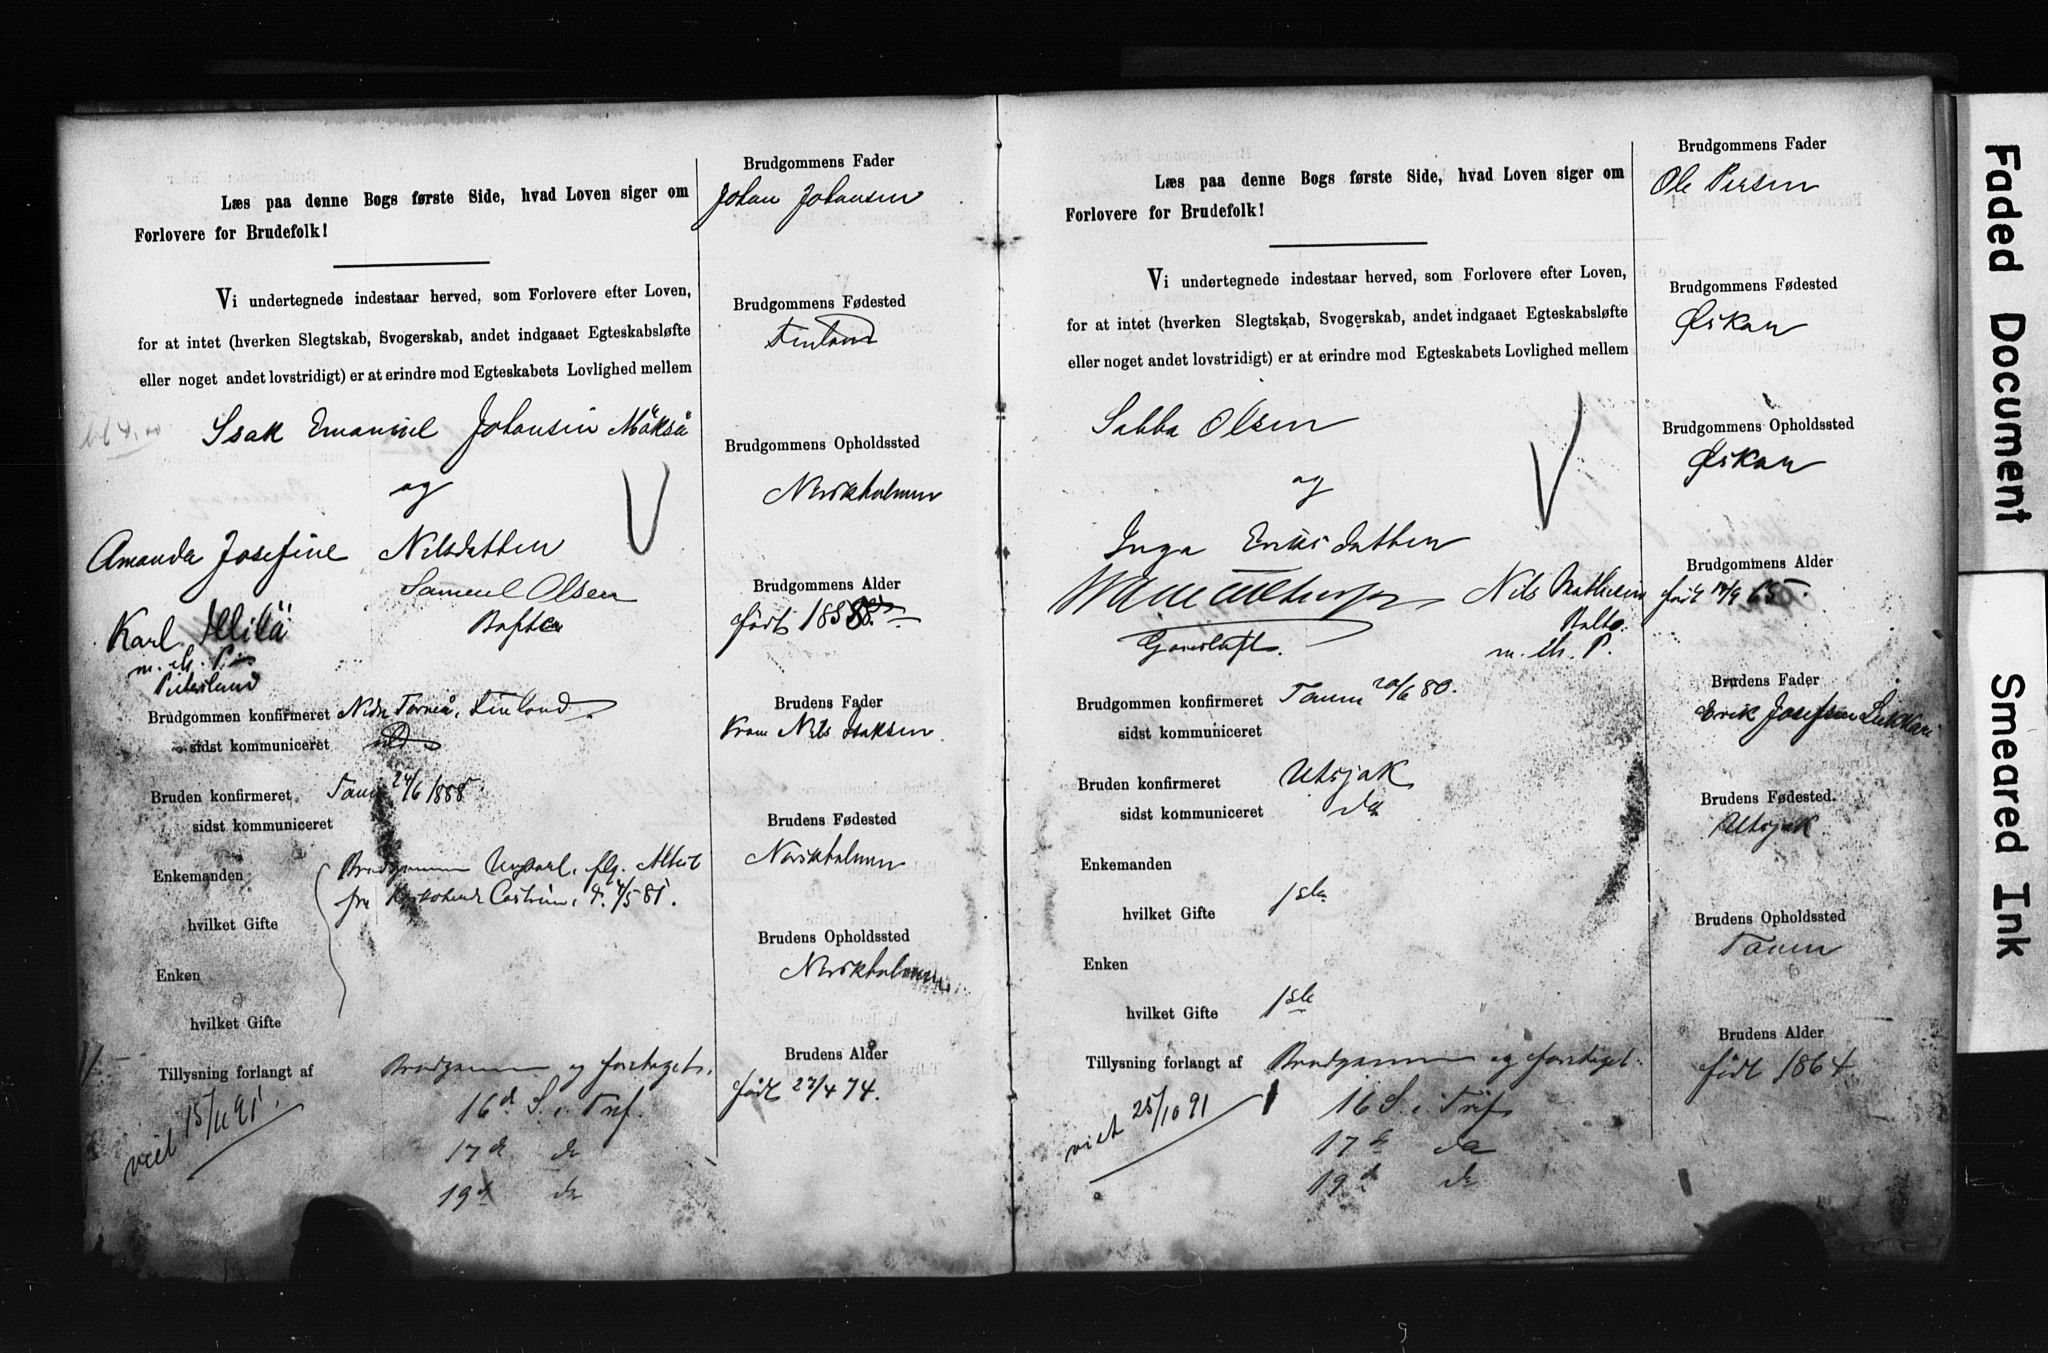 Læs paa denne Bogs første Side, hvad Loven siger om
Forlovere for Brudefolk!
Vi undertegnede indestaar herved, som Forlovere efter Loven,
for at intet (hverken Slegtskab, Svogerskab, andet indgaaet Egteskabsløfte
eller noget andet lovstridigt) er at erindre mod Egteskabets Lovlighed mellem
Isak Emanuel Johansen
og
Amanda Josefine Nilsdatter
Samuel Olsen
Karl
m. ih. P.
Brudgommen konfirmeret Finland
sidst kommuniceret
Bruden konfirmeret Tanen 24/6 1888
sidst kommuniceret
Enkemanden Brudgommen
hvilket Gifte fra
Enken
hvilket Gifte
Tillysning forlangt af Brudgommen og foretaget
16d S. i Tref.
17d do
19d do
viet 15/11 91.
Brudgommens Fader
Johan Johansen
Brudgommens Fødested
Finland
Brudgommens Opholdssted
Brudgommens Alder
født
Brudens Fader
Nils Isaksen
Brudens Fødested
Brudens Opholdssted
Brudens Alder
født 27/4 74.
Læs paa denne Bogs første Side, hvad Loven siger om
Forlovere for Brudefolk!
Vi undertegnede indestaar herved, som Forlovere efter Loven,
for at intet (hverken Slegtskab, Svogerskab, andet indgaaet Egteskabsløfte
eller noget andet lovstridigt) er at erindre mod Egteskabets Lovlighed mellem
Sabba Olsen
og
Inga Eriksdatter
Nils Mathisen
Balto
m. ih. P.
Brudgommen konfirmeret Tanen 20/6 80.
sidst kommuniceret
Bruden konfirmeret Utsjok
sidst kommuniceret do
Enkemanden
hvilket Gifte 1ste
Enken
hvilket Gifte 1ste
Tillysning forlangt af Brudgommen og foretaget
16 S. i Tref
17d do
19d do
viet 25/10 91
Brudgommens Fader
Ole Persen
Brudgommens Fødested
Øskan
Brudgommens Opholdssted
Øskan
Brudgommens Alder
født 14/9 65.
Brudens Fader
Erik Josefsen
Brudens Fødested.
Utsjok
Brudens Opholdssted
Tanen
Brudens Alder
født 1864
Faded Document
Smeared Ink